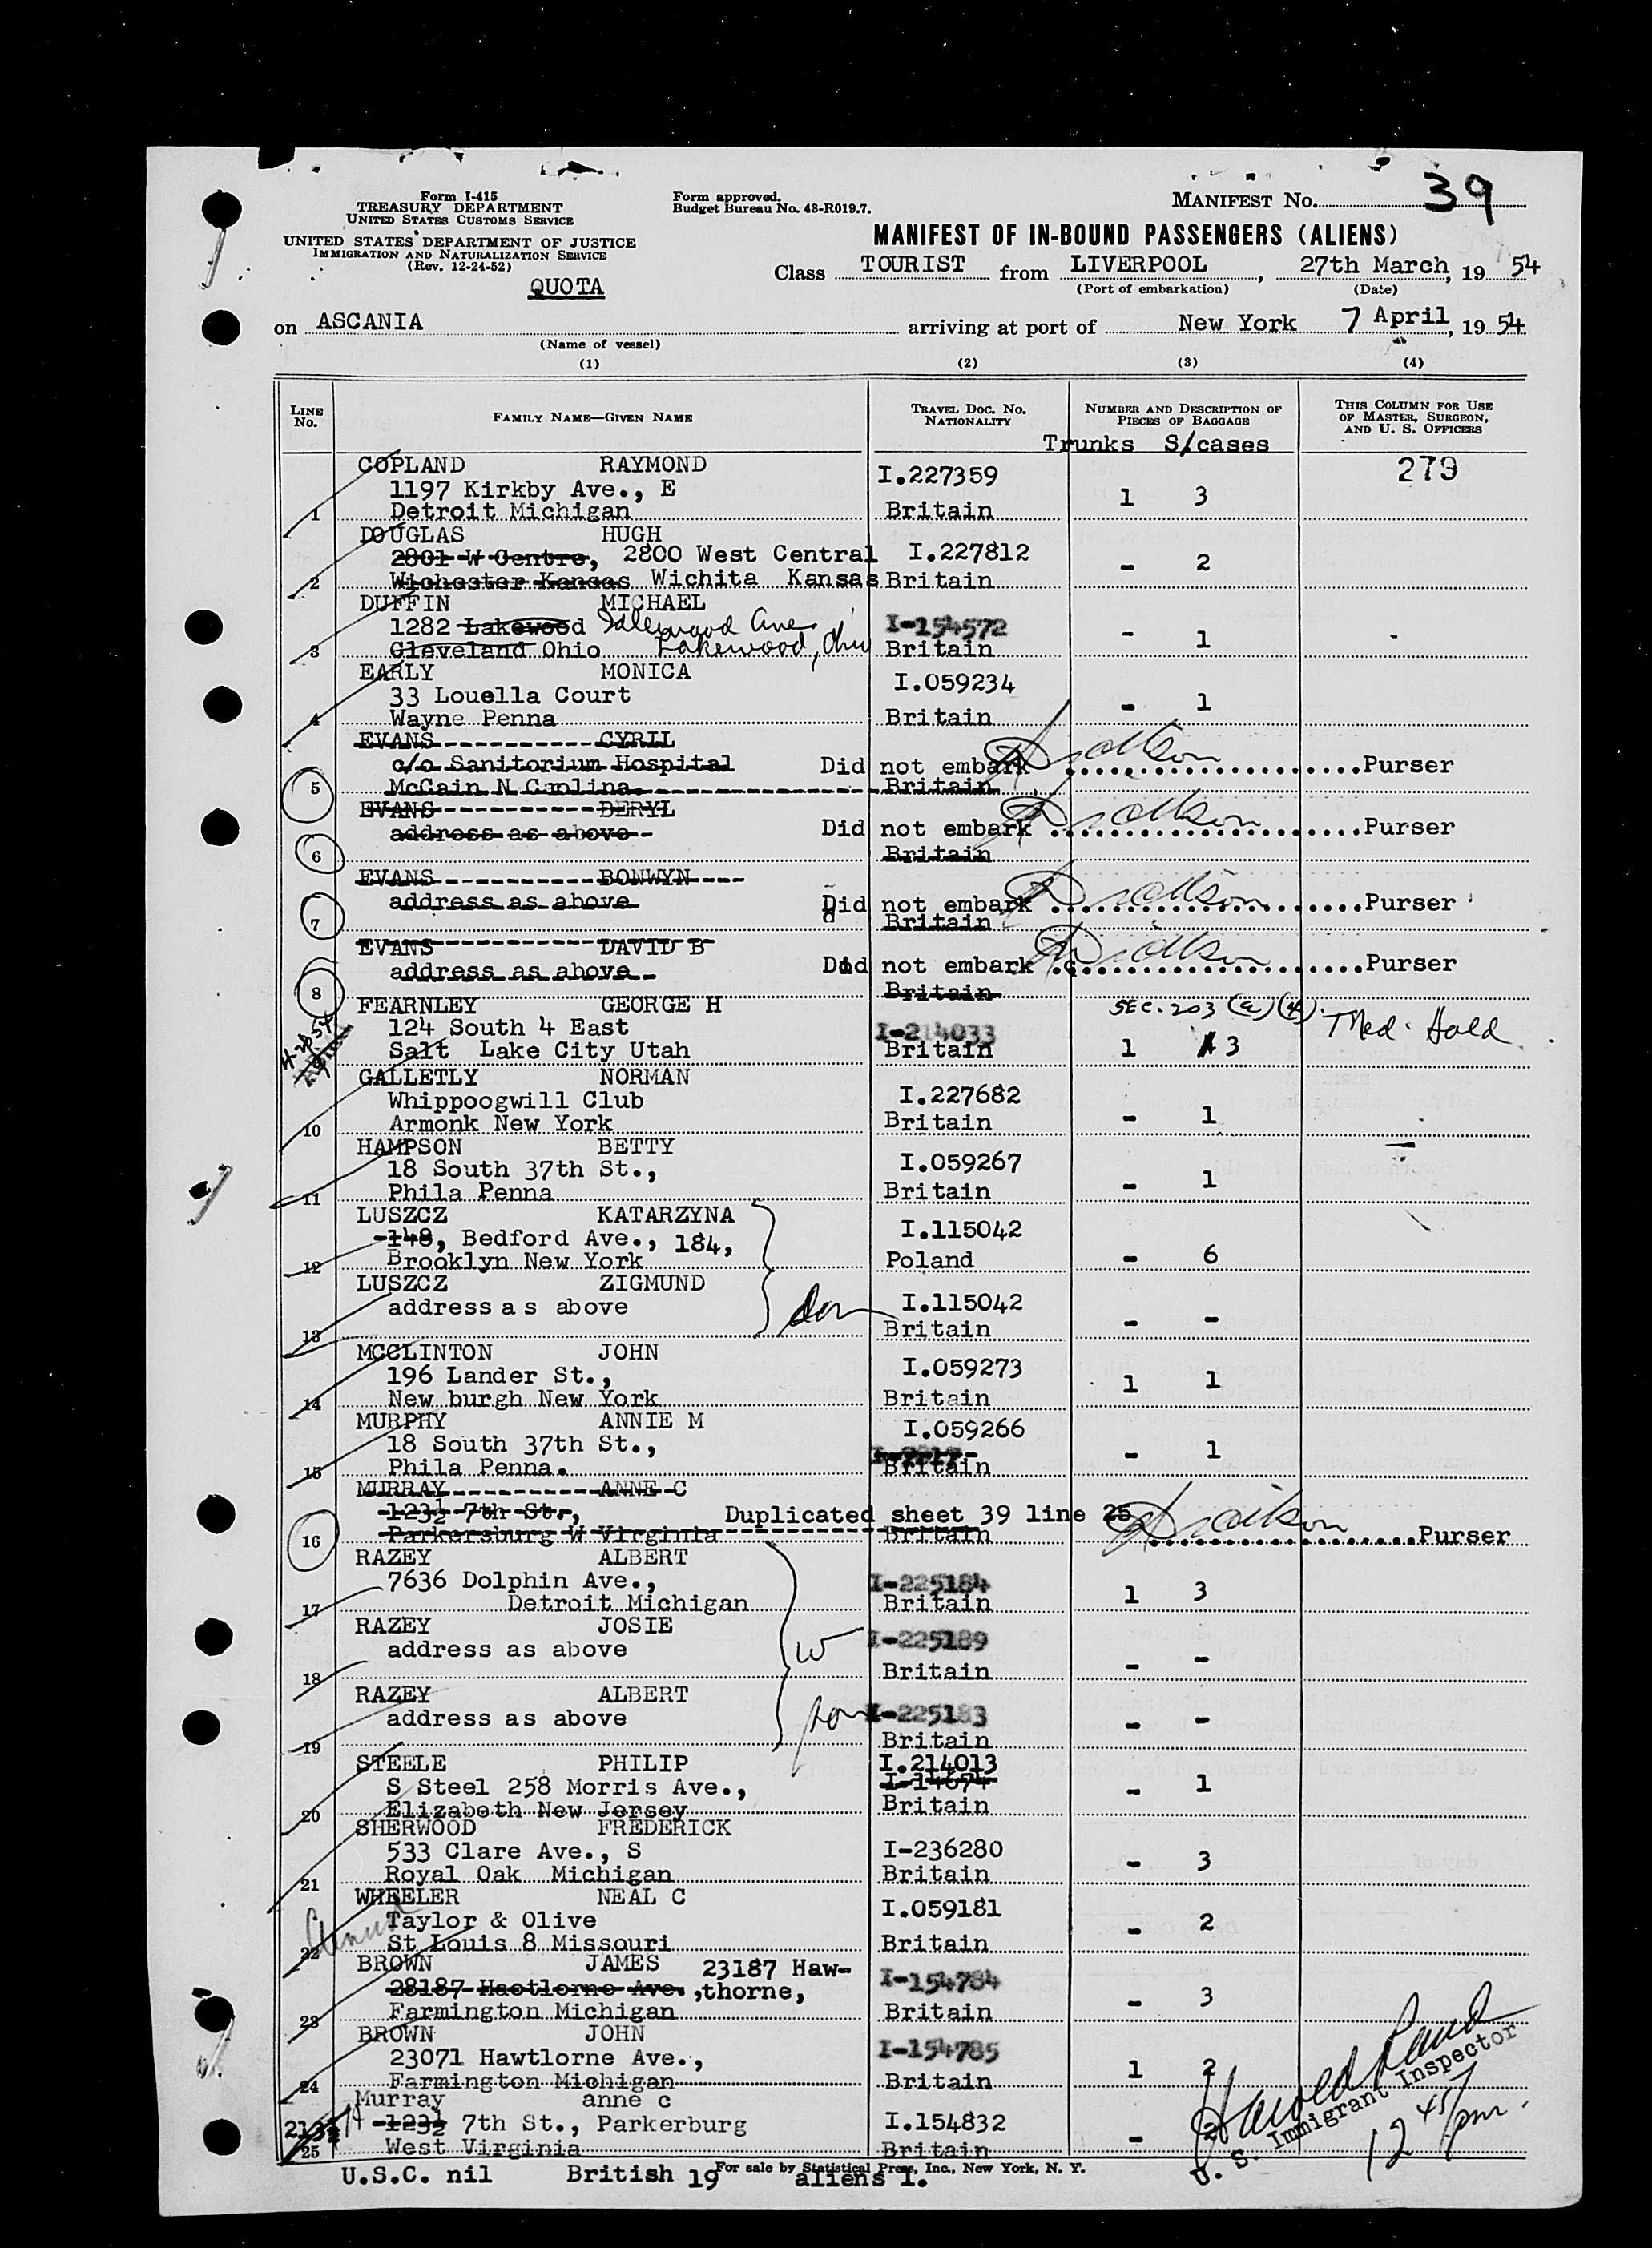 Form I-415
TREASURY DEPARTMENT
UNITED STATES CUSTOMS SERVICE
UNITED STATES DEPARTMENT OF JUSTICE
IMMIGRATION AND NATURALIZATION SERVICE
(Rev. 12-24-52)
QUOTA
Form approved.
Budget Bureau No. 43-R019.7.
MANIFEST No. 39
MANIFEST OF IN-BOUND PASSENGERS (ALIENS)
Class TOURIST from LIVERPOOL, 27th March, 19 54
(Port of embarkation) (Date)
on ASCANIA arriving at port of New York 7 April, 19 54
(Name of vessel)
(1) (2) (3) (4)
LINE No. FAMILY NAME—GIVEN NAME TRAVEL DOC. NO. NATIONALITY NUMBER AND DESCRIPTION OF PIECES OF BAGGAGE THIS COLUMN FOR USE OF MASTER, SURGEON, AND U. S. OFFICERS
Trunks S/cases
279
COPLAND RAYMOND I.227359
1197 Kirkby Ave., E 1 3
1 Detroit Michigan Britain
DOUGLAS HUGH
2801 W Centre, 2800 West Central I.227812 - 2
2 Wichester Kansas Wichita Kansas Britain
DUFFIN MICHAEL
1282 Lakewood Idlewood Ave I-154572 - 1
3 Cleveland Ohio Lakewood, Ohio Britain
EARLY MONICA I.059234
33 Louella Court - 1
4 Wayne Penna Britain
EVANS CYRIL
c/o Sanitorium Hospital Did not embark Purser
5 McCain N Carolina. Britain
EVANS BERYL
address as above Did not embark Purser
6 Britain
EVANS BONWYN
address as above Did not embark Purser
7 Britain
EVANS DAVID B
address as above Did not embark Purser
8 Britain
FEARNLEY GEORGE H SEC. 203 (a) (4). Med. Hold
124 South 4 East I-214033
Salt Lake City Utah Britain 1 3
GALLETLY NORMAN
Whippoogwill Club I.227682
10 Armonk New York Britain - 1
HAMPSON BETTY
18 South 37th St., I.059267
11 Phila Penna Britain - 1
LUSZCZ KATARZYNA
148, Bedford Ave., 184, I.115042
12 Brooklyn New York Poland - 6
LUSZCZ ZIGMUND
address as above I.115042
13 Britain - -
MCCLINTON JOHN
196 Lander St., I.059273
14 New burgh New York Britain 1 1
MURPHY ANNIE M I.059266
18 South 37th St.,
15 Phila Penna. Britain - 1
MURRAY ANNE C
123½ 7th St., Duplicated sheet 39 line 25 Purser
16 Parkersburg W Virginia Britain
RAZEY ALBERT
7636 Dolphin Ave., I-225184
17 Detroit Michigan Britain 1 3
RAZEY JOSIE
address as above I-225189
18 Britain - -
RAZEY ALBERT
address as above I-225183
19 Britain - -
STEELE PHILIP I.214013
S Steel 258 Morris Ave., I-14674 - 1
20 Elizabeth New Jersey Britain
SHERWOOD FREDERICK
533 Clare Ave., S I-236280
21 Royal Oak Michigan Britain - 3
WHEELER NEAL C
Taylor & Olive I.059181
22 St Louis 8 Missouri Britain - 2
BROWN JAMES 23187 Haw-
28187 Haotlorne Ave. ,thorne, I-154784
23 Farmington Michigan Britain - 3
BROWN JOHN
23071 Hawtlorne Ave., I-154785
24 Farmington Michigan Britain 1 2
Murray anne c
213½ 123½ 7th St., Parkerburg I.154832
25 West Virginia Britain - 2
Harold Rand
U. S. Immigrant Inspector
12 45 pm.
For sale by Statistical Press, Inc., New York, N. Y.
U.S.C. nil British 19 aliens 1.